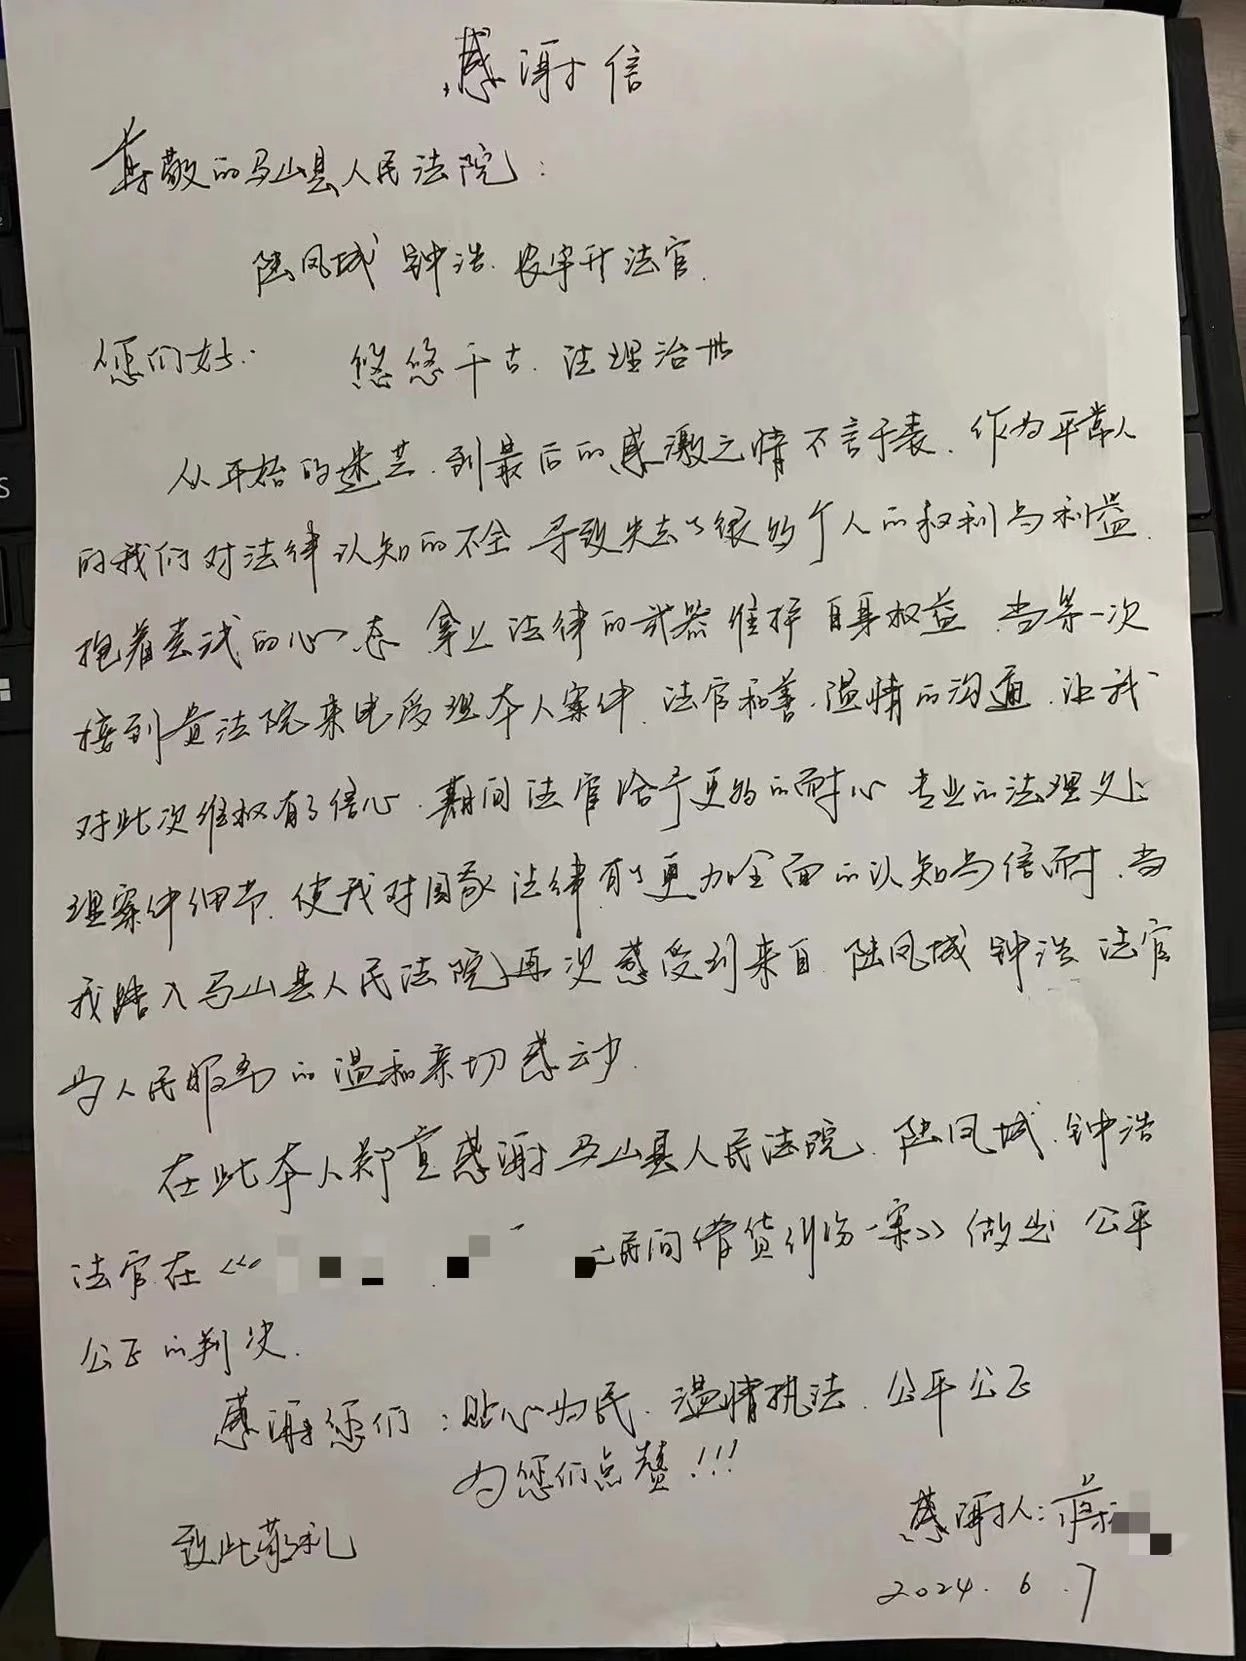 感谢信
尊敬的马山县人民法院：
陆凤城 钟浩、农宇升法官.
您们好： 悠悠千古、法理治世
从开始的迷茫、到最后的感激之情不言于表、作为平常人
的我们对法律认知的不全 导致失去了很多个人的权利与利益.
抱着尝试的心态 拿上法律的武器维护自身权益、当第一次
接到贵法院来电受理本人案件、法官和善、温情的沟通、让我
对此次维权有了信心、期间法官给予更多的耐心 专业的法理义上
理案件细节、使我对国家法律有了更加全面的认知与信耐、当
我踏入马山县人民法院再次感受到来自 陆凤城 钟浩 法官
为人民服务的温和亲切感动.
在此本人郑重感谢马山县人民法院、陆凤城、钟浩
法官在《 民间借贷纠纷一案》做出 公平
公正的判决.
感谢您们：贴心为民、温情执法、公平公正
为您们点赞！！！
致此敬礼
感谢人：蒋
2024.6.7